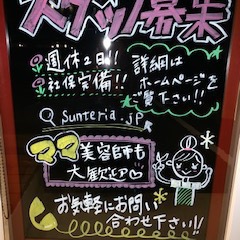 スタッフ募集
週休2日!!
社保完備!!
詳細は
ホームページを
ご覧下さい!!
sunteria.jp
ママ美容師も
大歓迎♡
お気軽にお問い
合わせ下さい!!